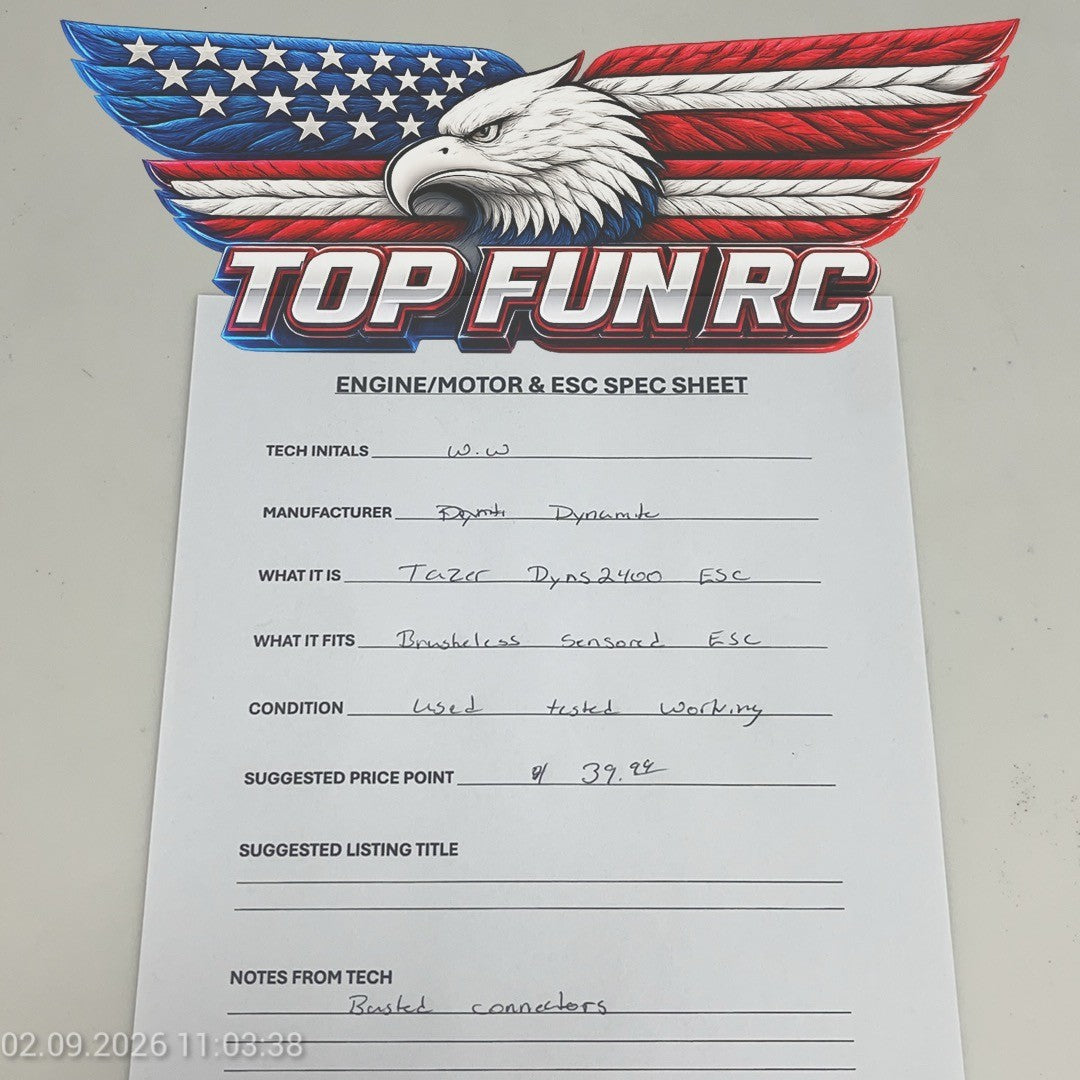 TOP FUN RC
ENGINE/MOTOR & ESC SPEC SHEET
TECH INITALS W.W
MANUFACTURER Dynamite
WHAT IT IS Tazer Dyns2400 ESC
WHAT IT FITS Brusheless Sensored ESC
CONDITION used tested working
SUGGESTED PRICE POINT $ 39.99
SUGGESTED LISTING TITLE
NOTES FROM TECH
Busted connectors
02.09.2026 11:03:38